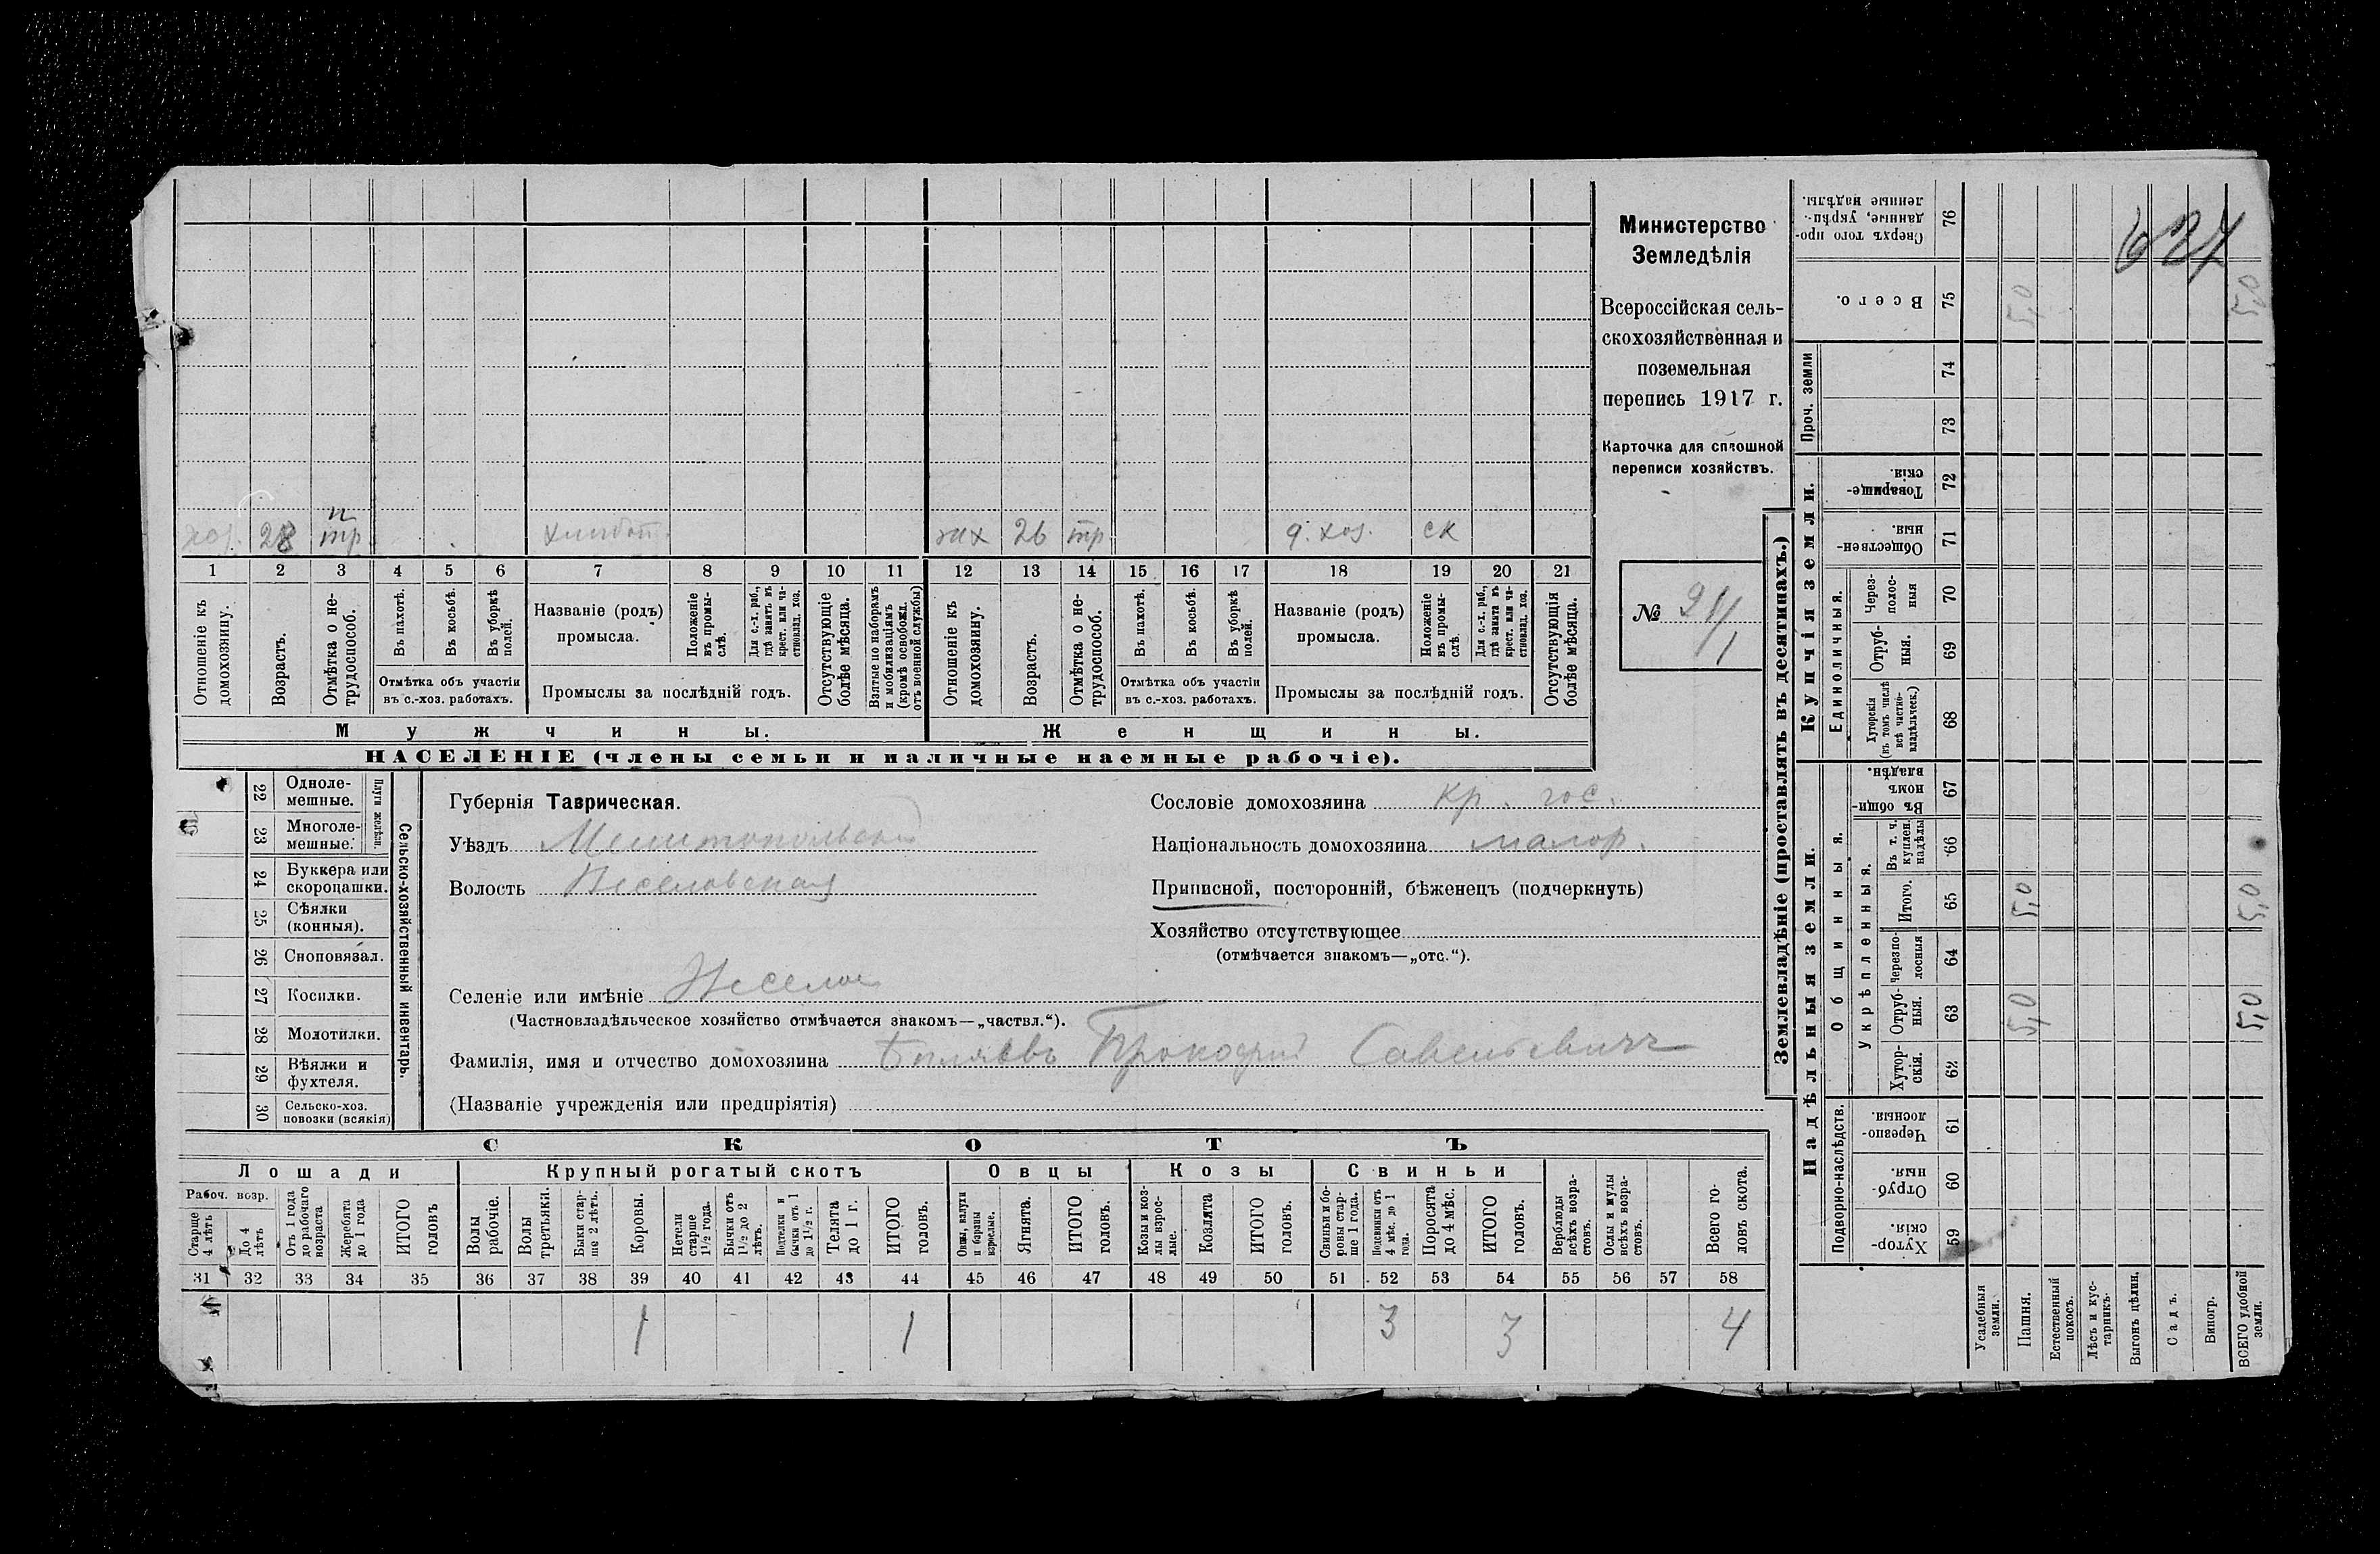 Министерство
Земледѣлія
Всероссійская сель-
скохозяйственная и
поземельная
перепись 1917 г.
Карточка для сплошной
переписи хозяйствъ.
№
627
28 тр. 26 тр. ск
1 2 3 4 5 6 7 8 9 10 11 12 13 14 15 16 17 18 19 20 21
Отношеніе къ домохозяину.
Возрастъ.
Отмѣтка о не-трудоспособ.
Въ пахотѣ.
Въ косьбѣ.
Въ уборкѣ полей.
Отмѣтка объ участіи
въ с.-хоз. работахъ.
Названіе (родъ)
промысла.
Положеніе въ промы-слѣ.
Для с.-х. раб., гдѣ занятъ въ крест. или ча-стновлад. хоз.
Промыслы за послѣдній годъ.
Отсутствующіе болѣе мѣсяца.
Взятые по наборамъ и мобилизаціямъ (кромѣ освобожд. отъ военной службы)
Отношеніе къ домохозяину.
Возрастъ.
Отмѣтка о не-трудоспособ.
Въ пахотѣ.
Въ косьбѣ.
Въ уборкѣ полей.
Отмѣтка объ участіи
въ с.-хоз. работахъ.
Названіе (родъ)
промысла.
Положеніе въ промы-слѣ.
Для с.-х. раб., гдѣ занята въ крест. или ча-стновлад. хоз.
Промыслы за послѣдній годъ.
Отсутствующія болѣе мѣсяца.
Мужчины.
Женщины.
НАСЕЛЕНІЕ (члены семьи и наличные наемные рабочіе).
Сельско-хозяйственный инвентарь.
Плуги желѣзн.
22 Одноле-мешные.
23 Многоле-мешные.
24 Буккера или скоропашки.
25 Сѣялки (конныя).
26 Сноповязал.
27 Косилки.
28 Молотилки.
29 Вѣялки и фухтеля.
30 Сельско-хоз. повозки (всякія)
Губернія Таврическая.
Уѣздъ Мелитопольский
Волость Веселовская
Селеніе или имѣніе Веселое
(Частновладѣльческое хозяйство отмѣчается знакомъ—„частвл.“).
Фамилія, имя и отчество домохозяина Бѣляевъ Прокофий Савельевичъ
(Названіе учрежденія или предпріятія)
Сословіе домохозяина кр. гос.
Національность домохозяина малор.
Приписной, посторонній, бѣженецъ (подчеркнуть)
Хозяйство отсутствующее
(отмѣчается знакомъ—„отс.“).
СКОТЪ
Лошади
Крупный рогатый скотъ
Овцы
Козы
Свиньи
Рабоч. возр.
Старше 4 лѣтъ
До 4 лѣтъ
Отъ 1 года до рабочаго возраста
Жеребята до 1 года
ИТОГО головъ
Волы рабочіе.
Волы третьяки.
Быки стар-ше 2 лѣтъ.
Коровы.
Нетели старше 1½ года.
Бычки отъ 1½ до 2 лѣтъ.
Подтелки и бычки отъ 1 до 1½ г.
Телята до 1 г.
ИТОГО головъ.
Овцы, валухи и бараны взрослые.
Ягнята.
ИТОГО головъ.
Козы и коз-лы взрос-лые.
Козлята
ИТОГО головъ.
Свиньи и бо-ровы стар-ше 1 года.
Подсвинки отъ 4 мѣс. до 1 года.
Поросята до 4 мѣс.
ИТОГО головъ.
Верблюды всѣхъ возра-стовъ.
Ослы и мулы всѣхъ возра-стовъ.
Всего го-ловъ скота.
31 32 33 34 35 36 37 38 39 40 41 42 43 44 45 46 47 48 49 50 51 52 53 54 55 56 57 58
1 1 3 3 4
Землевладѣніе (проставлять въ десятинахъ.)
Надѣльныя земли.
Купчія земли.
Проч. земли
Подворно-наслѣдств.
Общинныя.
Укрѣпленныя.
Единоличныя.
Хутор-скія. 59
Отруб-ныя. 60
Черезпо-лосныя. 61
Хутор-скія. 62
Отруб-ныя. 63
Черезпо-лосныя 64
Итого. 65
Въ т. ч. куплен. надѣлы 66
Въ общи-номъ владѣн. 67
Хуторскія (въ томъ числѣ всѣ частно-владѣльческ.) 68
Отруб-ныя. 69
Через-полос-ныя 70
Обществен-ныя. 71
Товарище-скія. 72
73
74
Всего. 75
Сверхъ того про-данные, укрѣп-ленные надѣлы. 76
Усадебныя земли.
Пашня. 5,0 5,0 5,0
Естественный покосъ.
Лѣсъ и кус-тарникъ.
Выгонъ цѣлин.
Садъ.
Виногр.
ВСЕГО удобной земли. 5,0 5,0 5,0